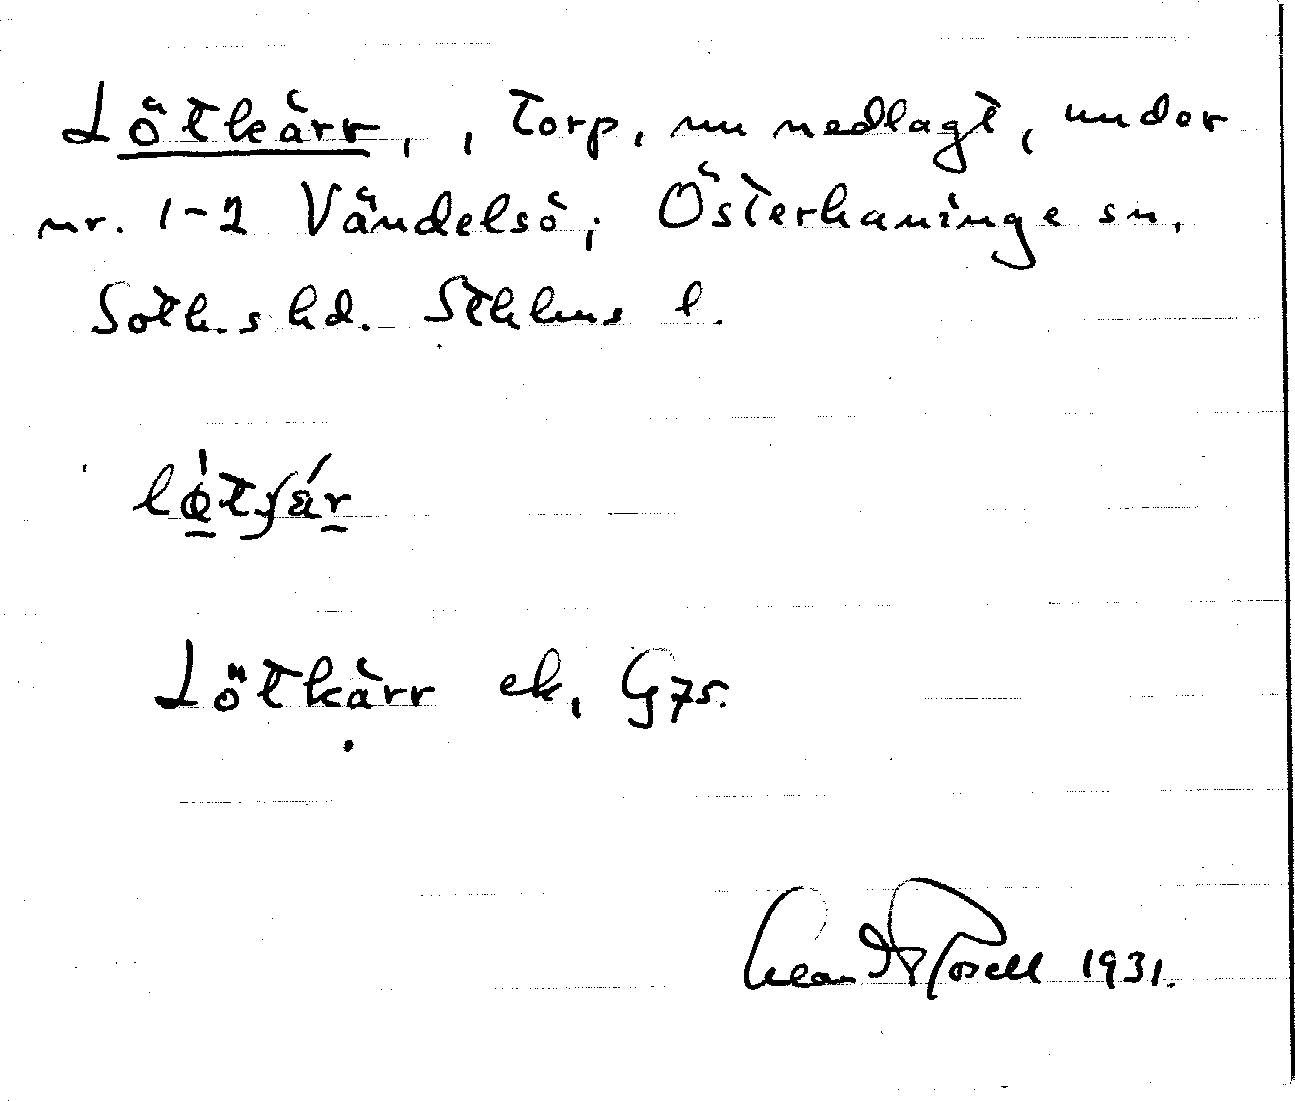 Lötkärr, , Torp, nu nedlagt, under
nr. 1-2 Vändelsö; Österhaninge sn.
Soth.s hd. Sthlms l.
Lötkärr ek, G75.
1931.